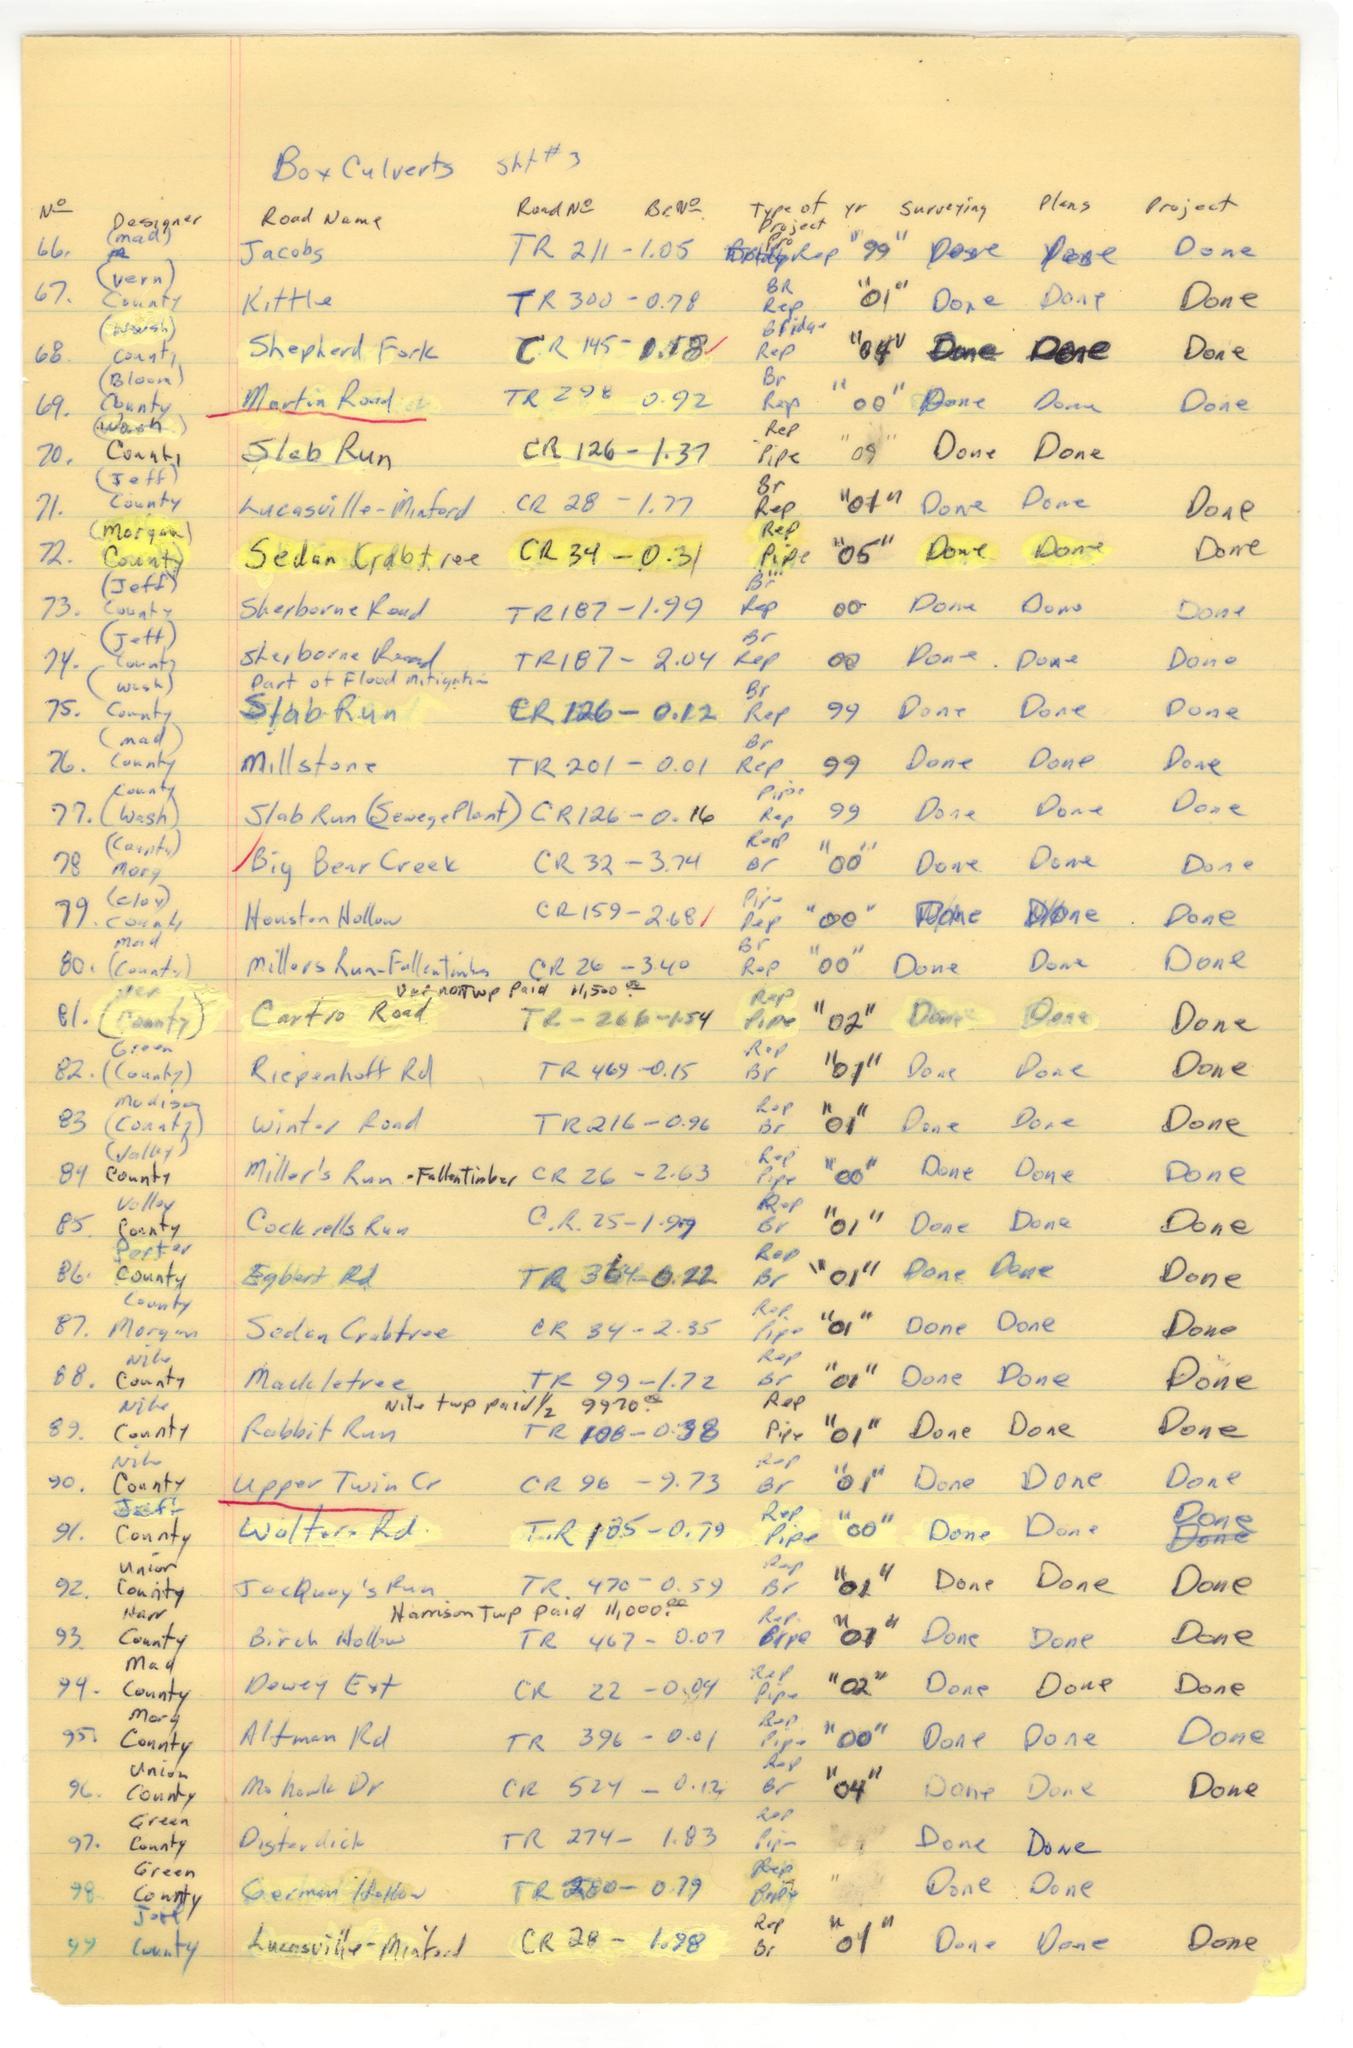 Box Culverts Sht # 3
No Designer Road Name Road No Br. No. Type of Project yr Surveying Plans Project
66. (mad) Jacobs TR 211 - 1.05 Rep "99" Done Done Done
(Vern) BR
67. County Kittle TR 300 - 0.78 Rep "01" Done Done Done
(Wash) Bridge
68. County Shepherd Fork CR 145 - 1.18 Rep "04" Done Done Done
(Bloom) Br
69. County Martin Road TR 298 0.92 Rep "00" Done Done Done
(Wash) Rep
70. County Slab Run CR 126 - 1.37 Pipe "09" Done Done
(Jeff) Br
71. County Lucasville - Minford CR 28 - 1.77 Rep "01" Done Done Done
(Morgan) Rep
72. County Sedan Crabtree CR 34 - 0.31 Pipe "05" Done Done Done
(Jeff) Br
73. County Sherborne Road TR 187 - 1.99 Rep 00 Done Done Done
(Jeff) Br
74. County Sherborne Road TR 187 - 2.04 Rep 00 Done Done Done
(Wash) Part of Flood Mitigation Br
75. County Slab Run CR 126 - 0.12 Rep 99 Done Done Done
(mad) Br
76. County Millstone TR 201 - 0.01 Rep 99 Done Done Done
County Pipe
77. (Wash) Slab Run (Sewege Plant) CR 126 - 0.16 Rep 99 Done Done Done
(County) Rep
78 Morg Big Bear Creek CR 32 - 3.74 Br "00" Done Done Done
(Clay) Pipe
79. County Houston Hollow CR 159 - 2.68 Rep "00" Done Done Done
Mad Br
80. (County) Millers Run - Fallentimber CR 26 - 3.40 Rep "00" Done Done Done
Ver Vernon Twp Paid 11,500.00 Rep
81. (County) Cartro Road TR - 266 - 1.54 Pipe "02" Done Done Done
Green Rep
82. (County) Riepenhoff Rd TR 469 - 0.15 Br "01" Done Done Done
Madison Rep
83 (County) Winter Road TR 216 - 0.96 Br "01" Done Done Done
(Valley) Rep
84 County Miller's Run - Fallentimber CR 26 - 2.63 Pipe "00" Done Done Done
Valley Rep
85. County Cockrells Run C.R. 25 - 1.99 Br "01" Done Done Done
Porter Rep
86. County Egbert Rd TR 364 - 0.22 Br "01" Done Done Done
County Rep
87. Morgan Sedan Crabtree CR 34 - 2.35 Pipe "01" Done Done Done
Nile Rep
88. County Mackletree TR 99 - 1.72 Br "01" Done Done Done
Nile Nile twp paid 1/2 9970.00 Rep
89. County Rabbit Run TR 108 - 0.38 Pipe "01" Done Done Done
Nile Rep
90. County Upper Twin Cr CR 96 - 9.73 Br "01" Done Done Done
Jeff Rep Done
91. County Walters Rd. T.R 185 - 0.79 Pipe "00" Done Done Done
Union Rep
92. County JacQuay's Run TR 470 - 0.59 Br "02" Done Done Done
Harr Harrison Twp Paid 11,000.00 Rep
93. County Birch Hollow TR 467 - 0.07 "01" Done Done Done
Mad Rep
94. County Dewey Ext CR 22 - 0.04 Pipe "02" Done Done Done
Morg Rep
95. County Altman Rd TR 396 - 0.01 Pipe "00" Done Done Done
Union Rep
96. County Mohawk Dr CR 524 - 0.12 Br "04" Done Done Done
Green Rep
97. County Disterdick TR 274 - 1.83 Pipe Done Done
Green Rep
98. County German Hollow TR 280 - 0.79 Done Done
Jeff Rep
99 County Lucasville - Minford CR 28 - 1.98 Br "01" Done Done Done